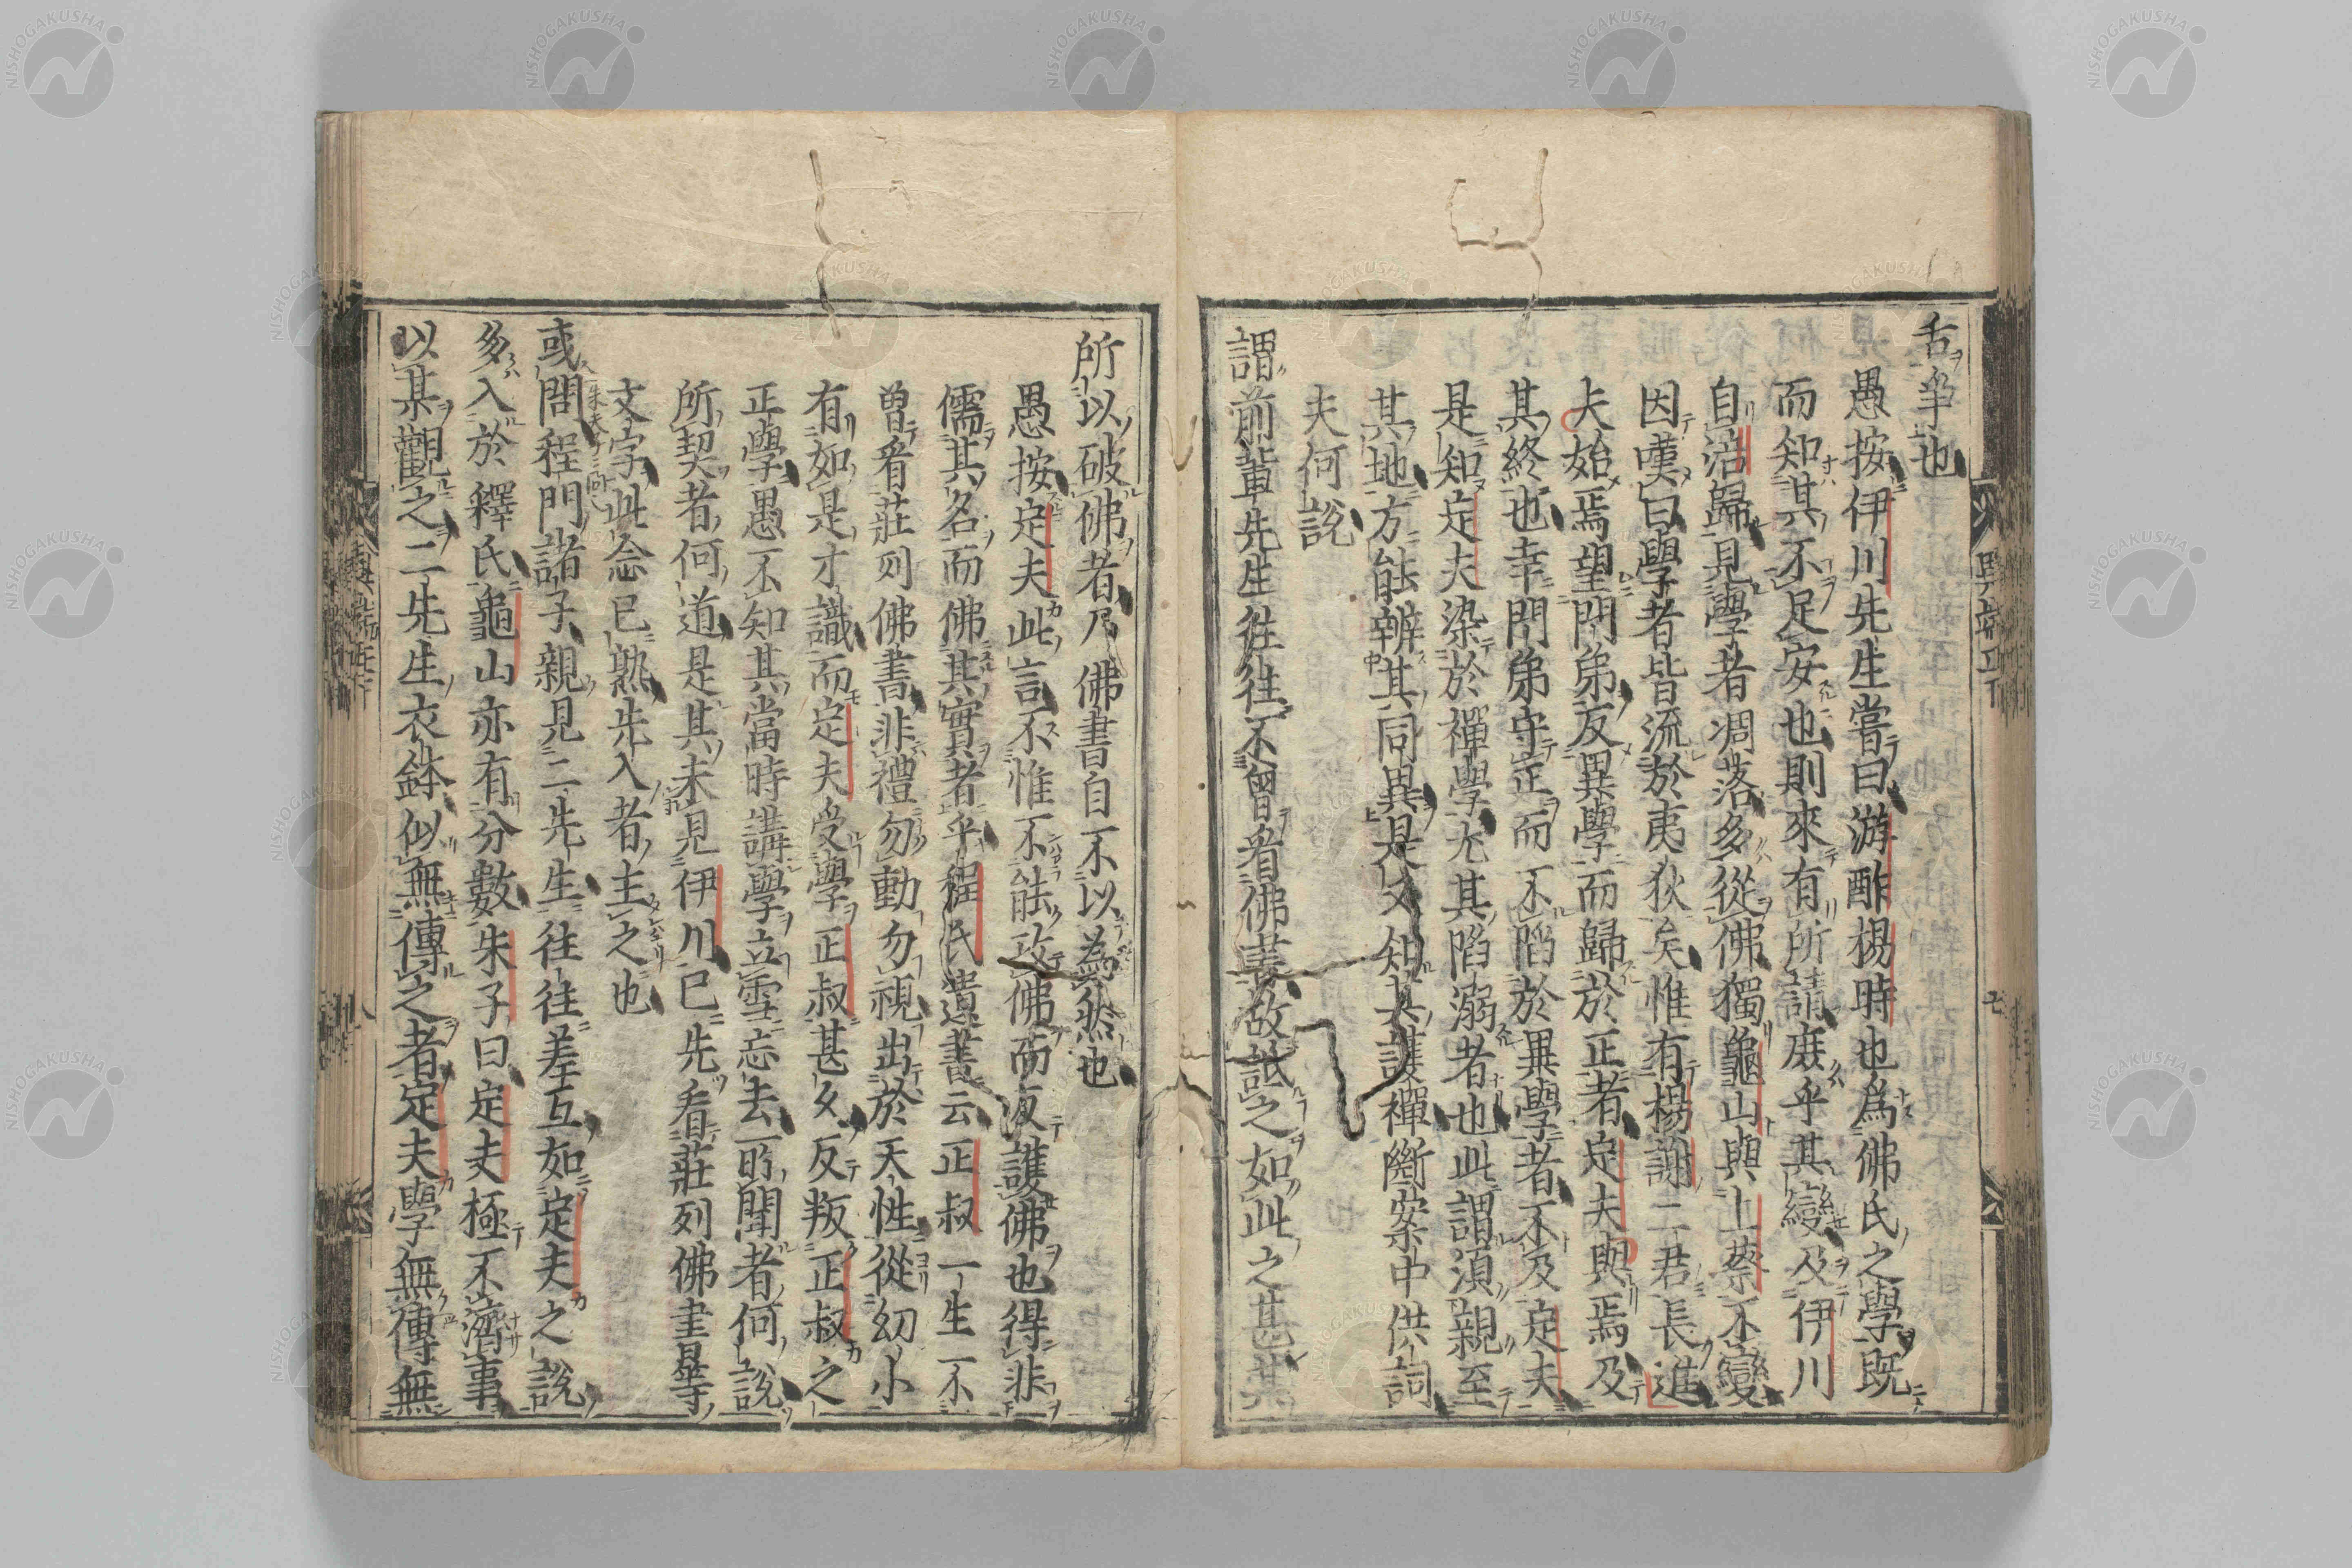 舌爭也
愚按伊川先生嘗曰游酢楊時也爲佛氏之學既
而知其不足安也則來有所請庶乎其變及伊川
自涪歸見學者凋落多從佛獨龜山與上蔡不變
因嘆曰學者皆流於夷狄矣惟有楊謝二君長進
夫始焉望門弟反異學而歸於正者定夫與焉及
其終也幸門弟守正而不陷於異學者不及定夫
是知定夫染於禪學尤其陷溺者也此謂須親至
其地方能辨其同異是又知其護禪斷案中供詞
夫何說
謂前輩先生往往不曾看佛書故詆之如此之甚其
所以破佛者乃佛書自不以為然也
愚按定夫此言不惟不能攻佛而反護佛也得非
儒其名而佛其實者乎程氏遺書云正叔一生不
曾看莊列佛書非禮勿動勿視出於天性從幼小
有如是才識而定夫受學正叔甚久反叛正叔之
正學愚不知其當時講學立雪忘去所聞者何說
所契者何道是其未見伊川已先看莊列佛書等
文字此念已熟先入者主之也
或問程門諸子親見二先生往往差互如定夫之說
多入於釋氏龜山亦有分數朱子曰定夫極不濟事
以某觀之二先生衣鉢似無傳之者定夫學無傳無